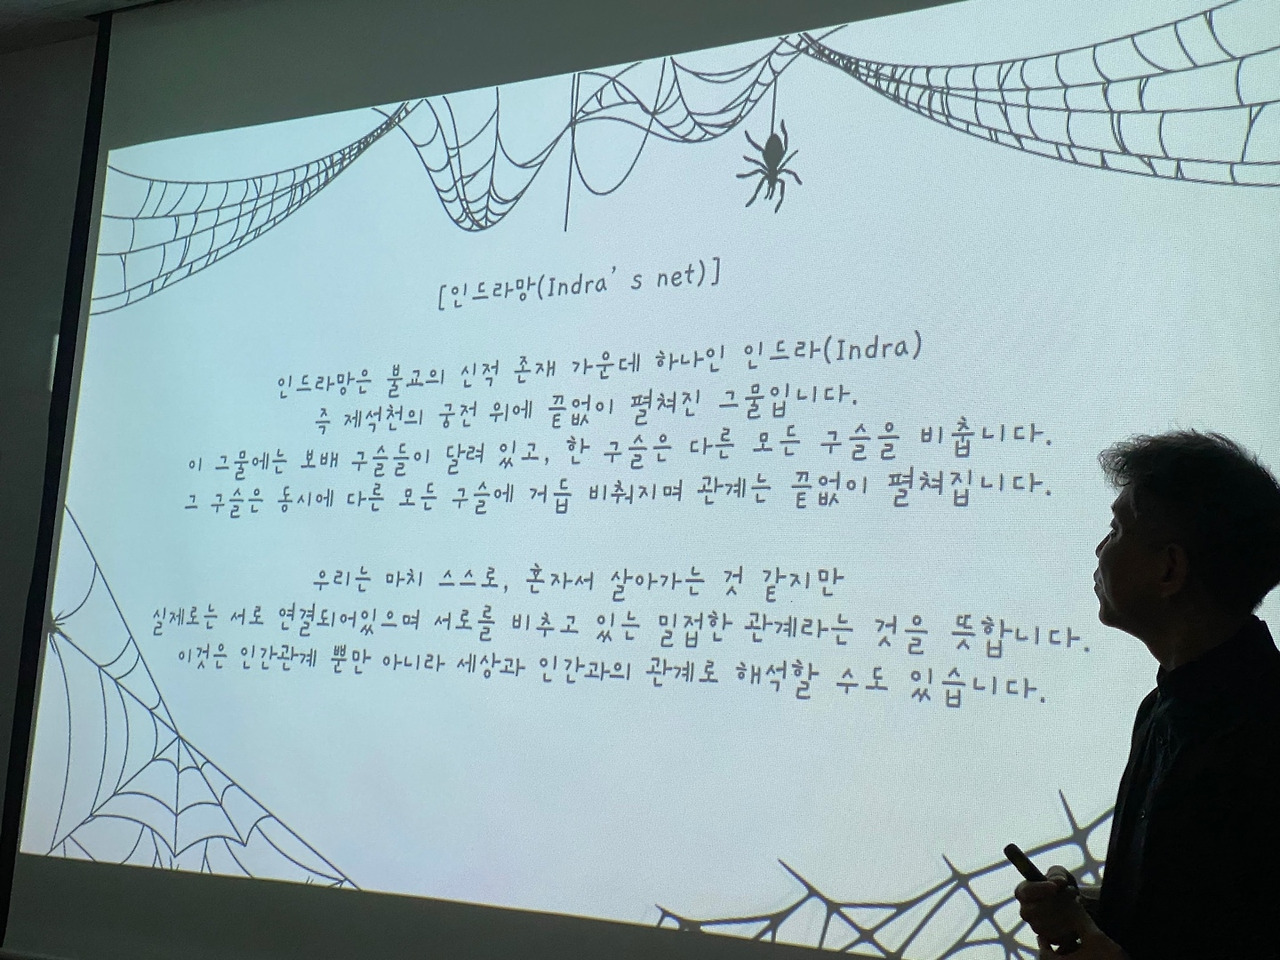 [인드라망(Indra's net)]
인드라망은 불교의 신적 존재 가운데 하나인 인드라(Indra)
즉 제석천의 궁전 위에 끝없이 펼쳐진 그물입니다.
이 그물에는 보배 구슬들이 달려 있고, 한 구슬은 다른 모든 구슬을 비춥니다.
그 구슬은 동시에 다른 모든 구슬에 거듭 비춰지며 관계는 끝없이 펼쳐집니다.
우리는 마치 스스로, 혼자서 살아가는 것 같지만
실제로는 서로 연결되어있으며 서로를 비추고 있는 밀접한 관계라는 것을 뜻합니다.
이것은 인간관계 뿐만 아니라 세상과 인간과의 관계로 해석할 수도 있습니다.